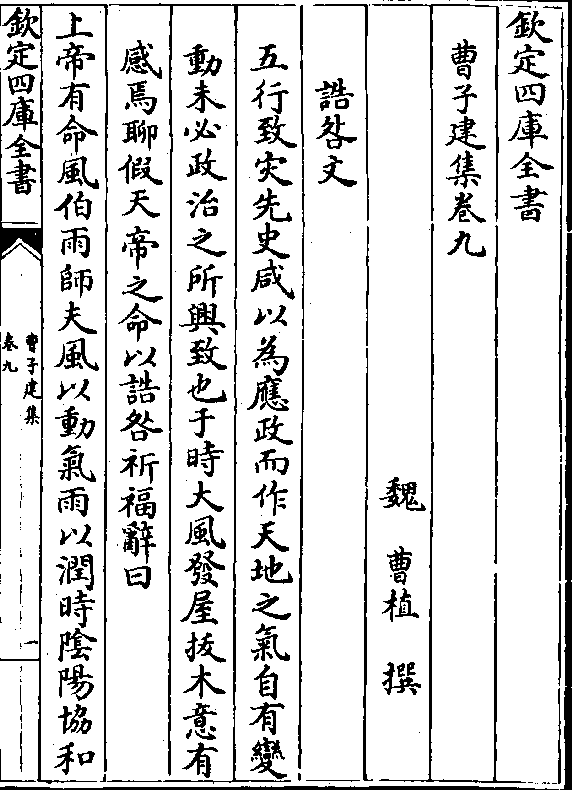 欽定四庫全書
曹子建集卷九
魏 曹植 撰
誥咎文
五行致灾先史咸以為應政而作天地之氣自有變
動未必政治之所興致也于時大風發屋拔木意有
感焉聊假天帝之命以誥咎祈福辭曰
上帝有命風伯雨師夫風以動氣雨以潤時隂陽協和
欽定四庫全書
曹子建集
卷九
一